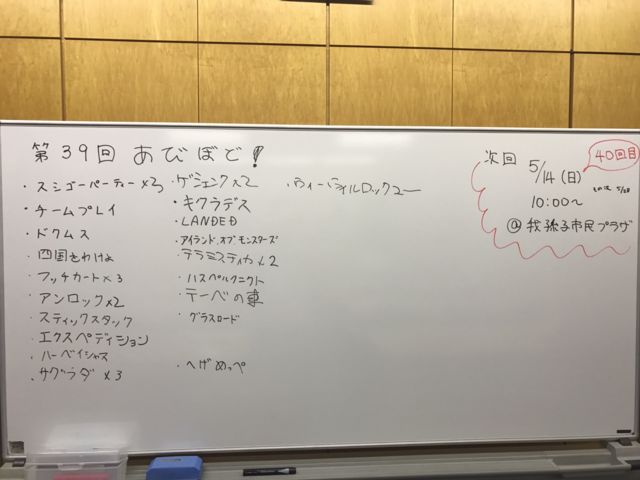 第39回 あびぼど!
・スシゴーパーティー×3
・チームプレイ
・ドクムス
・四国をわけよ
・フッチカート×3
・アンロック×2
・スティックスタック
・エクスペディション
・ハーベイシャス
・サグラダ×3
・ゲシェンク×2
・キクラデス
・LANDED
・アイランド・オブ・モンスターズ
・テラミスティカ×2
・ハスペルクニクト
・テーベの東
・グラスロード
・へげめっぺ
・ウィーウィルロックユー
次回 5/14(日)
40回目
その次 5/28
10:00〜
@我孫子市民プラザ